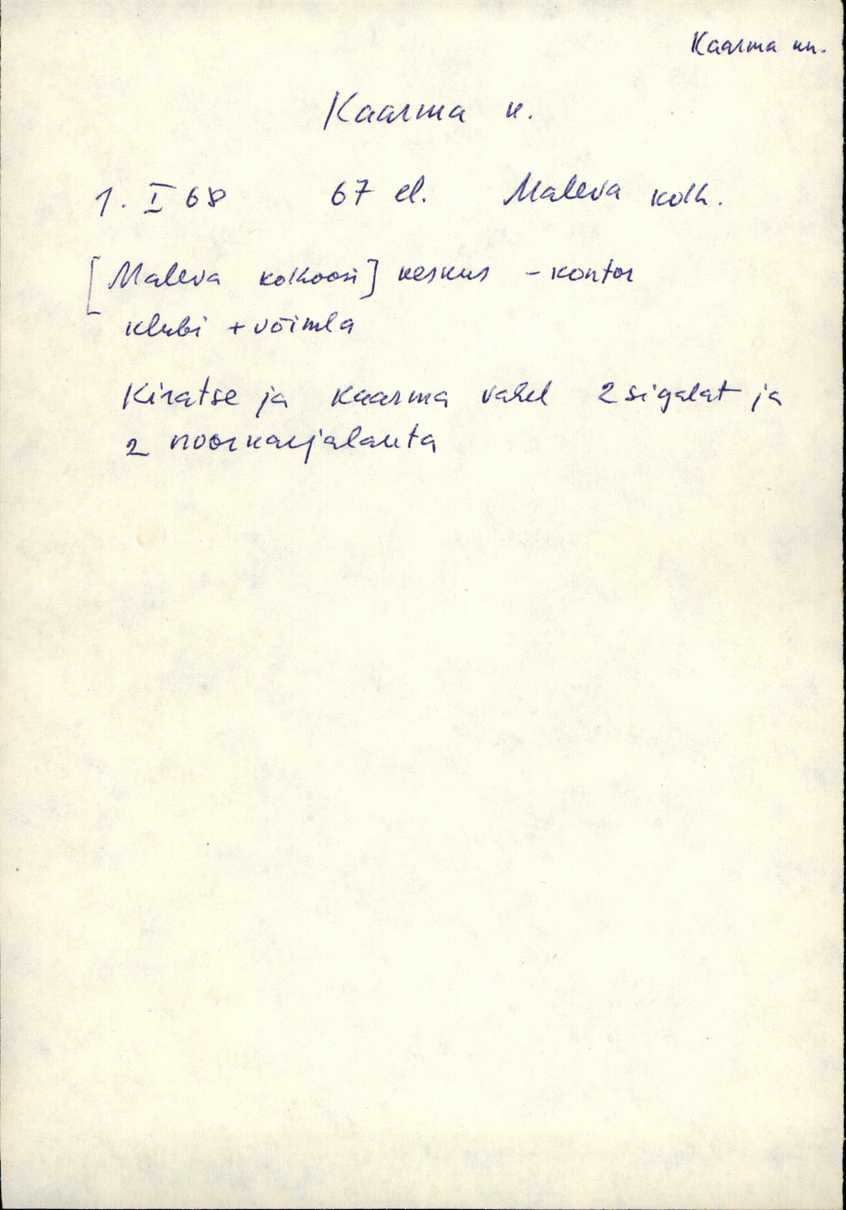 Kaarma kn.
Kaarma k.
1. I 68 67 el. Maleva kolh.
[Maleva kolhoosi] keskus - kontor
klubi + võimla
Kiratse ja Kaarma vahel 2 sigalat ja
2 noorkarjalauta